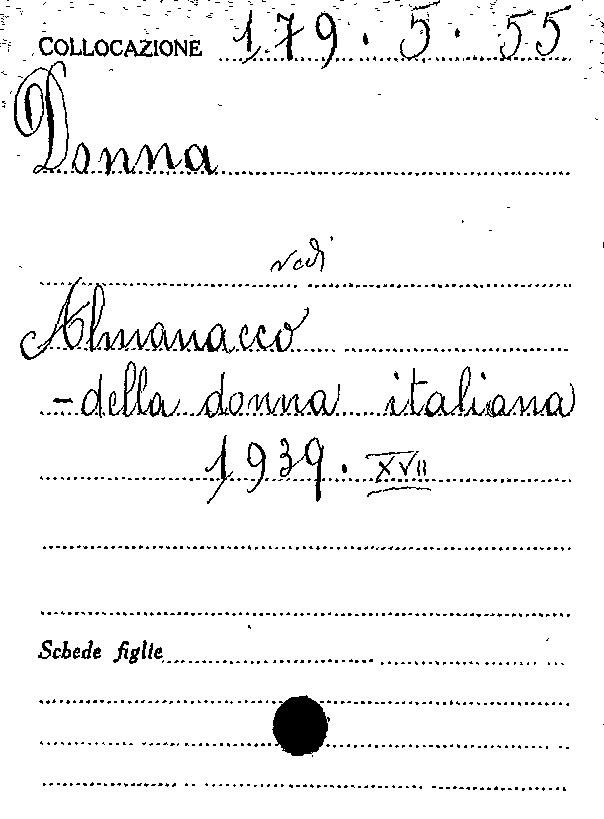 COLLOCAZIONE 179.5.55
Donna
vedi
Almanacco
- della donna italiana
1939. XVII
Schede figlie